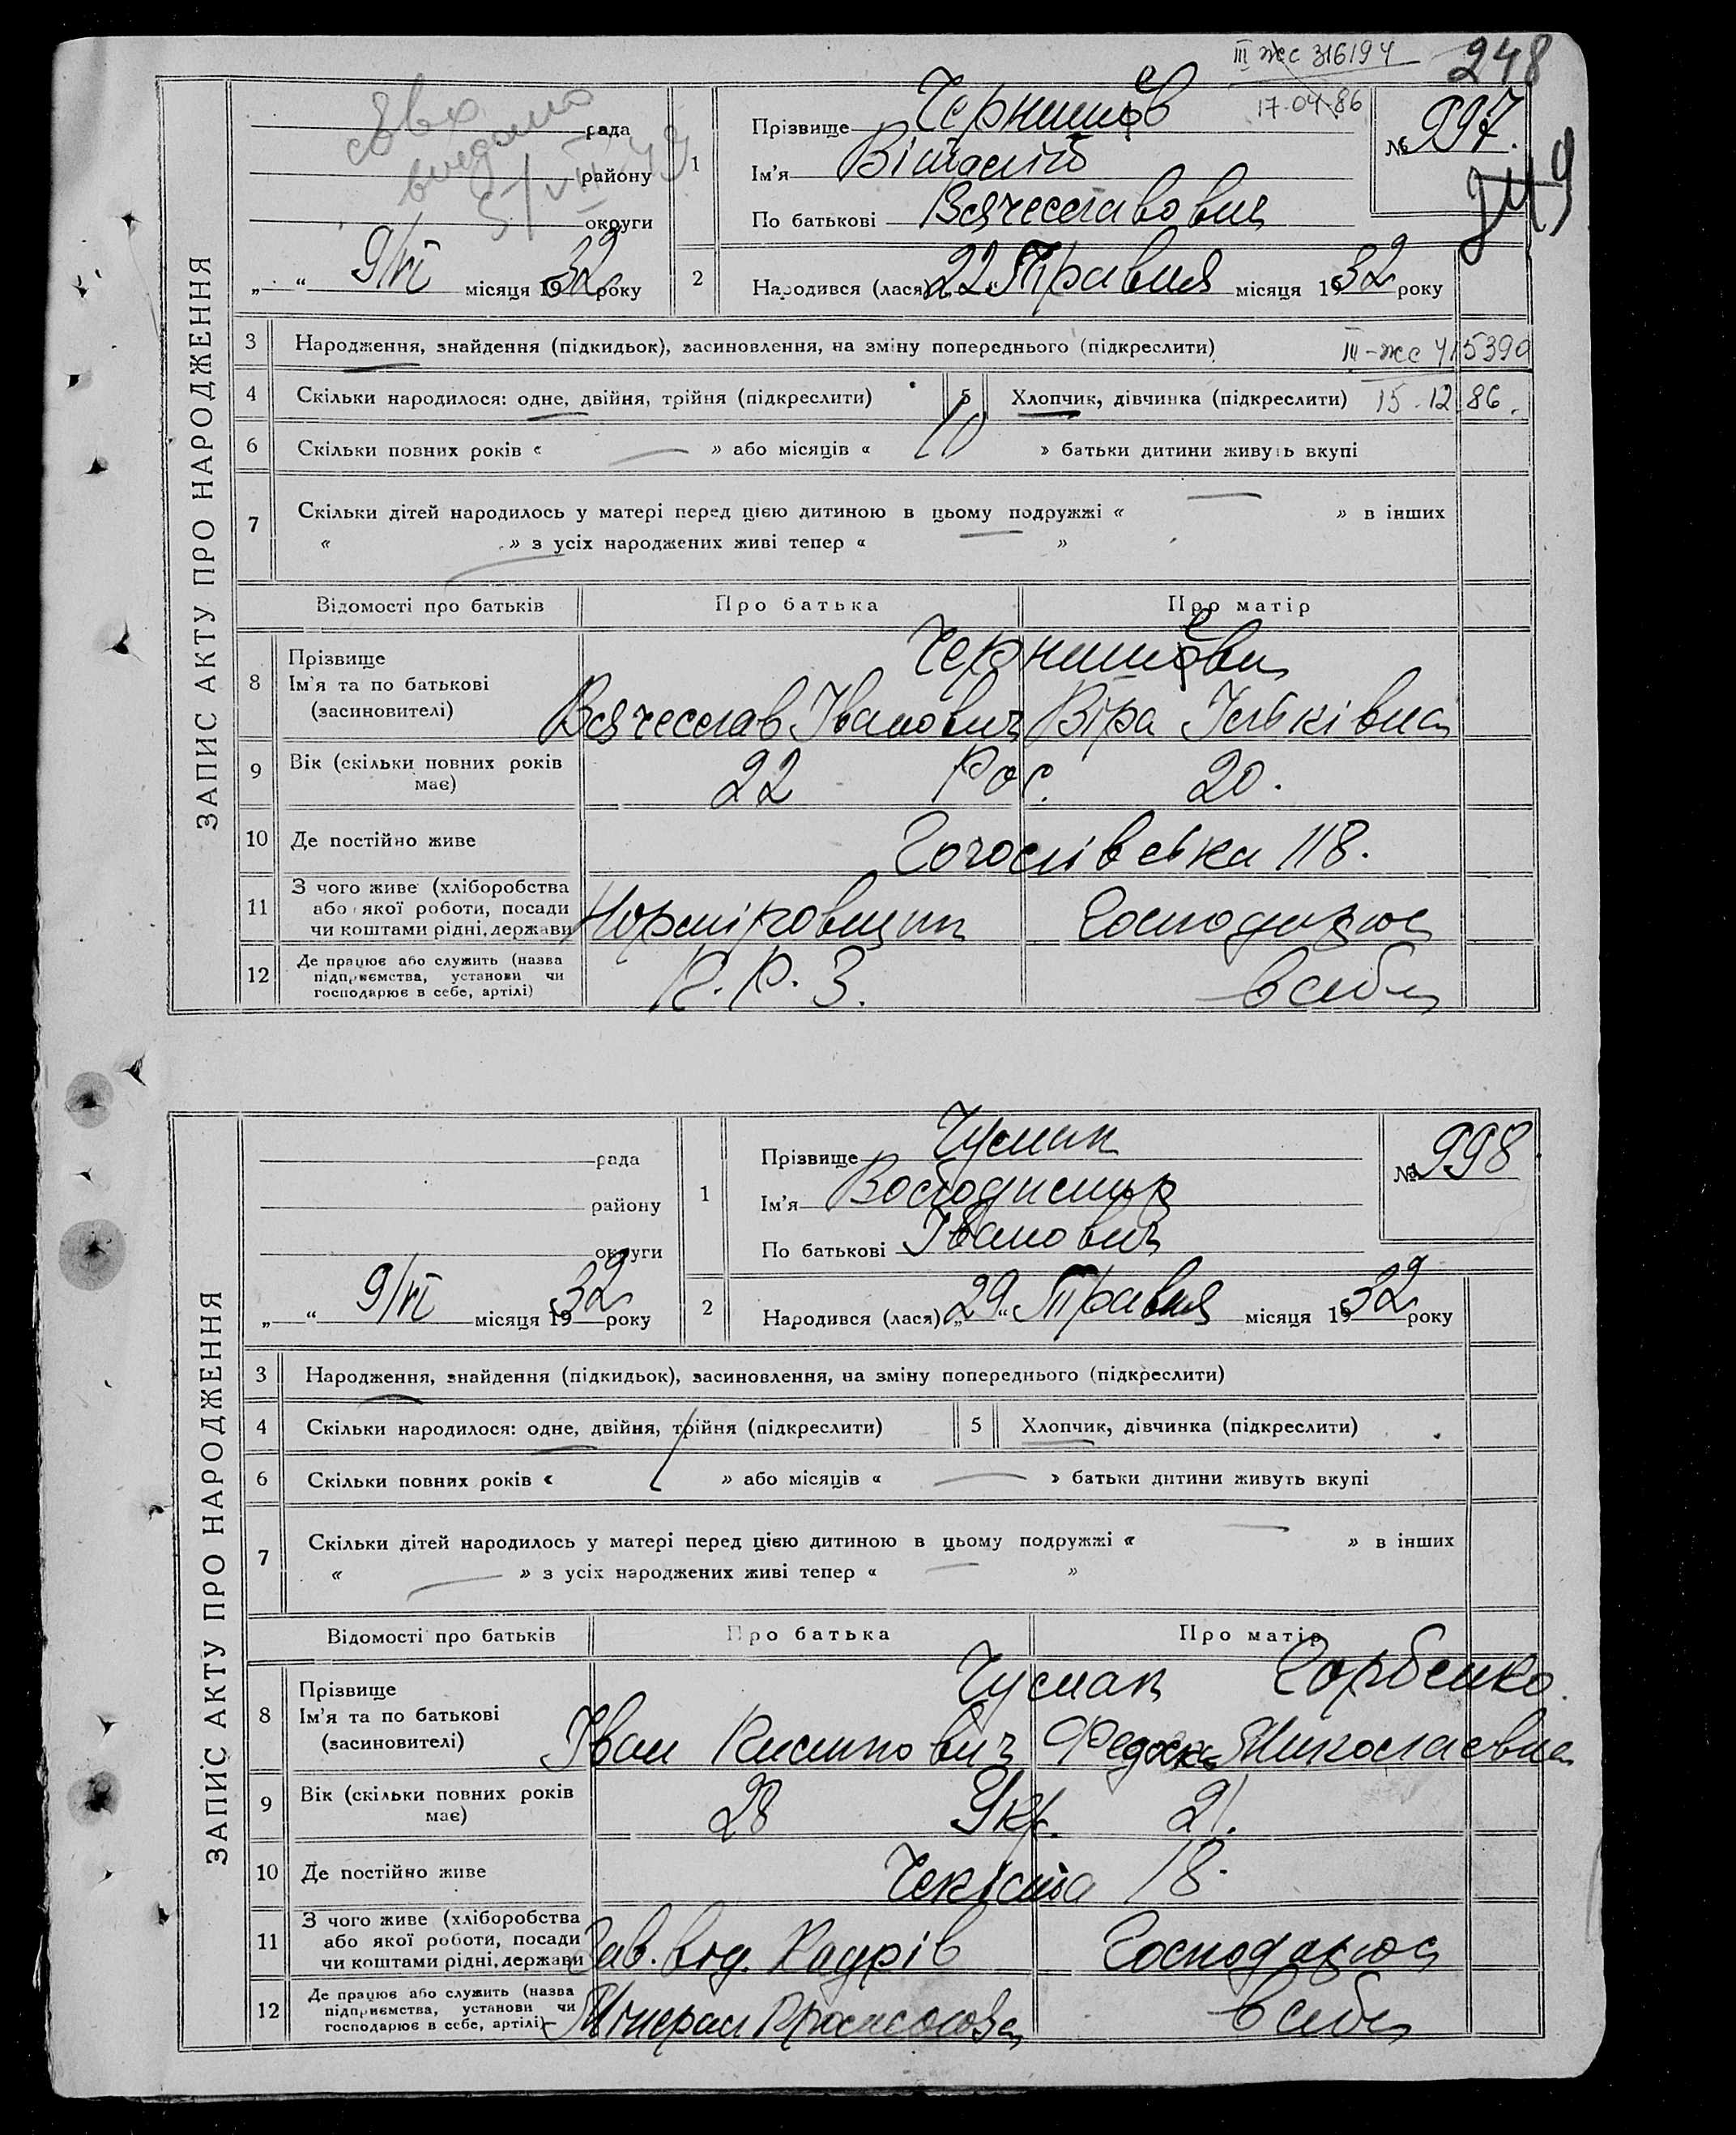 III жс 316194
248
17-04-86
рада
району
округи
9/VI місяця 1932 року
1
Прізвище Чернишев
Ім'я Віталій
По батькові Вячеславович
№ 997.
2
Народився (лася) „22" Травня місяця 1932 року
ЗАПИС АКТУ ПРО НАРОДЖЕННЯ
3 Народження, знайдення (підкидьок), засиновлення, на зміну попереднього (підкреслити)
III-жс 415390
4 Скільки народилося: одне, двійня, трійня (підкреслити) 5 Хлопчик, дівчинка (підкреслити)
15-12-86.
6 Скільки повних років « — » або місяців « 10 » батьки дитини живуть вкупі
7 Скільки дітей народилось у матері перед цією дитиною в цьому подружжі « — » в інших
« — » з усіх народжених живі тепер « »
Відомості про батьків Про батька Про матір
8 Прізвище
Ім'я та по батькові
(засиновителі)
Чернишеви
Вячеслав Іванович Віра Ільківна
9 Вік (скільки повних років має) 22 Рос. 20.
10 Де постійно живе Гоголівська 118.
11 З чого живе (хліборобства
або якої роботи, посади
чи коштами рідні, держави
Норміровщик Господарює
12 Де працює або служить (назва
підприємства, установи чи
господарює в себе, артілі)
К. Р. З. в себе
рада
району
округи
9/VI місяця 1932 року
1
Прізвище Чумак
Ім'я Володимир
По батькові Іванович
№ 998
2
Народився (лася) „29" Травня місяця 1932 року
ЗАПИС АКТУ ПРО НАРОДЖЕННЯ
3 Народження, знайдення (підкидьок), засиновлення, на зміну попереднього (підкреслити)
4 Скільки народилося: одне, двійня, трійня (підкреслити) 5 Хлопчик, дівчинка (підкреслити)
6 Скільки повних років « 1 » або місяців « — » батьки дитини живуть вкупі
7 Скільки дітей народилось у матері перед цією дитиною в цьому подружжі « — » в інших
« — » з усіх народжених живі тепер « — »
Відомості про батьків Про батька Про матір
8 Прізвище
Ім'я та по батькові
(засиновителі)
Чумак Горбенко.
Іван Николаевна
9 Вік (скільки повних років має) 28 Укр. 21.
10 Де постійно живе Чекіста 18.
11 З чого живе (хліборобства
або якої роботи, посади
чи коштами рідні, держави
Зав. від. Кадрів Господарює
12 Де працює або служить (назва
підприємства, установи чи
господарює в себе, артілі)
Мінерал в себе